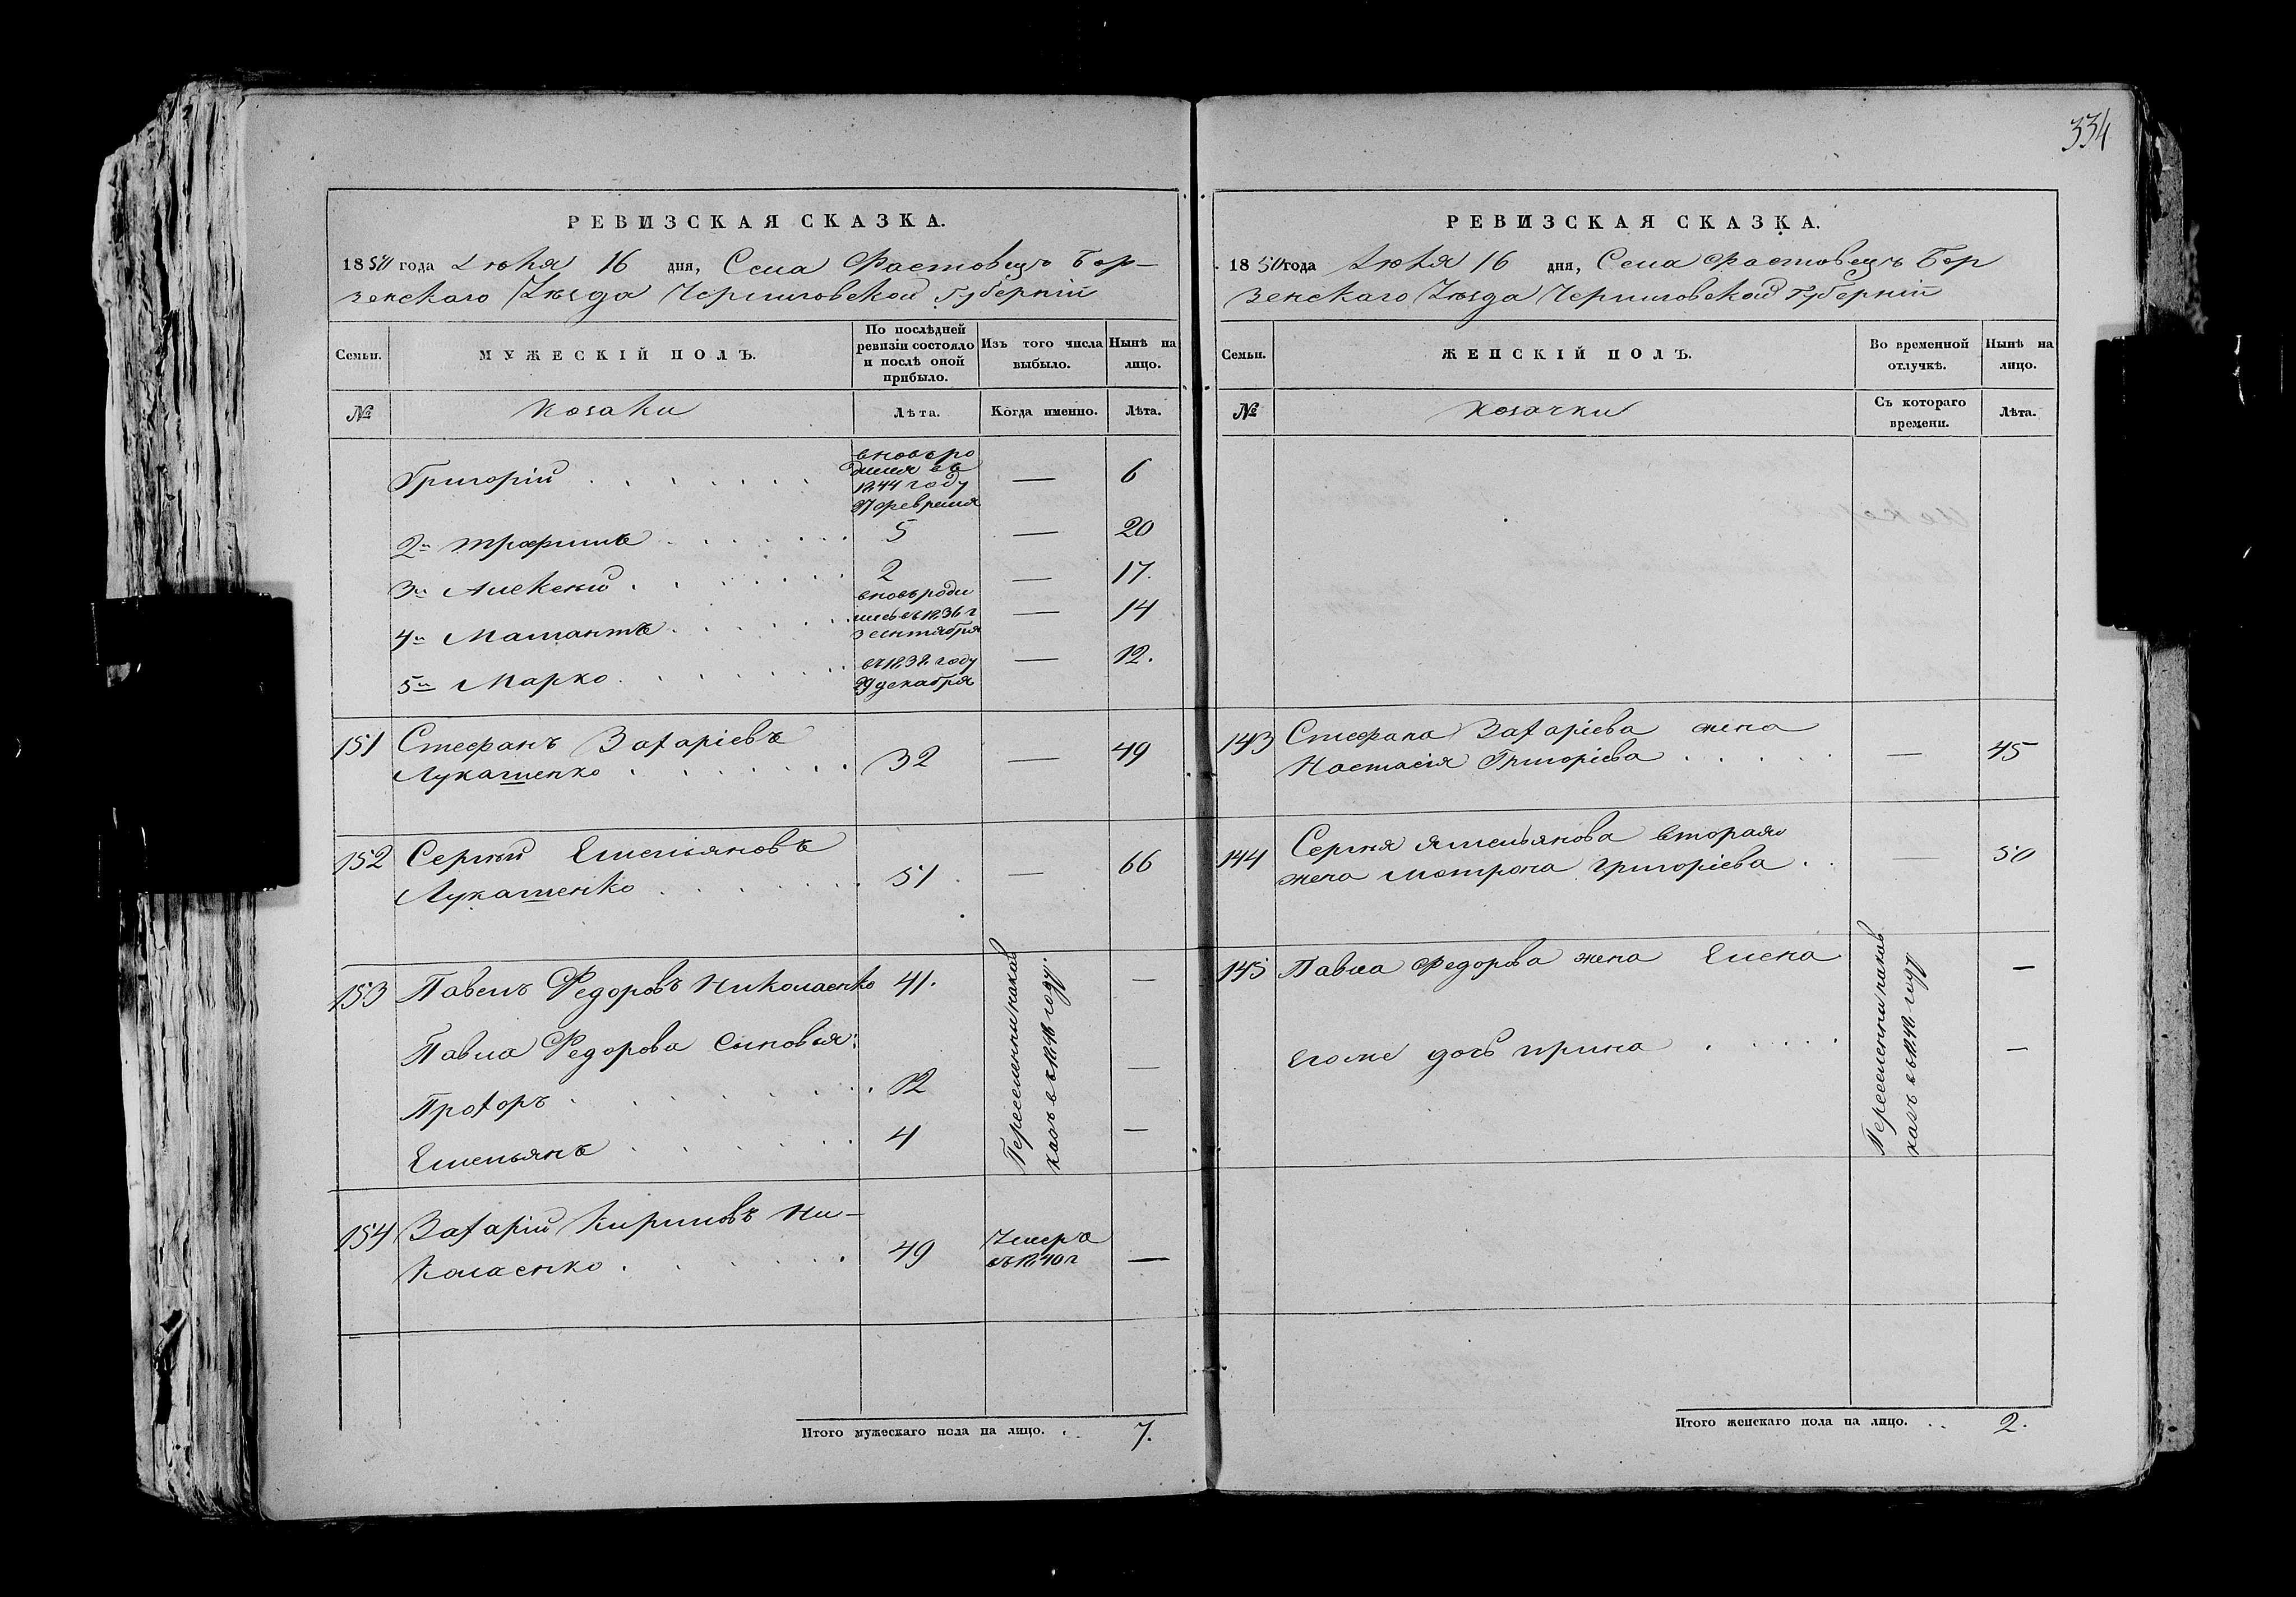 334
РЕВИЗСКАЯ СКАЗКА.
1850 года Июня 16 дня, Села Фастовецъ Бор-
зенскаго Уѣзда Черниговской Губерніи
Семьи.
МУЖЕСКІЙ ПОЛЪ.
По послѣдней ревизіи состояло и послѣ оной прибыло.
Изъ того числа выбыло.
Нынѣ на лицо.
№
Козаки
Лѣта.
Когда именно.
Лѣта.
Григорій вновь ро
дился въ
1844 году
27 февраля — 6
2й Трофимъ 5 — 20
3й Алексѣй 2 — 17.
4й Малантъ вновь роди
лись въ 1836 г
3 сентября — 14
5й Марко въ 1838 году
29 декабря — 12.
151 Стефанъ Захаріевъ
Лукашенко 32 — 49
152 Сергѣй Емельяновъ
Лукашенко 51 — 66
153 Павелъ Федоровъ Николаенко 41. —
Павла Федорова сыновья:
Прохоръ 12 —
Емельянъ 4 —
Переселенны на кав
казъ въ 1848 году.
154 Захарій Кириловъ Ни-
колаенко 49 Умеръ
въ 1840 г —
Итого мужескаго пола на лицо. 7.
РЕВИЗСКАЯ СКАЗКА.
1850 года Июня 16 дня, Села Фастовецъ Бор
зенскаго Уѣзда Черниговской Губерніи
Семьи.
ЖЕНСКІЙ ПОЛЪ.
Во временной отлучкѣ.
Нынѣ на лицо.
№
Козачки
Съ котораго времени.
Лѣта.
143 Стефана Захаріева жена
Настасія Григоріева — 45
144 Сергѣя Ямельянова вторая
жена Мотрона Григоріева — 50
145 Павла Федорова жена Елена —
Егоже дочь Ирина —
Переселенны на кав
казъ въ 1848 году
Итого женскаго пола на лицо. 2.